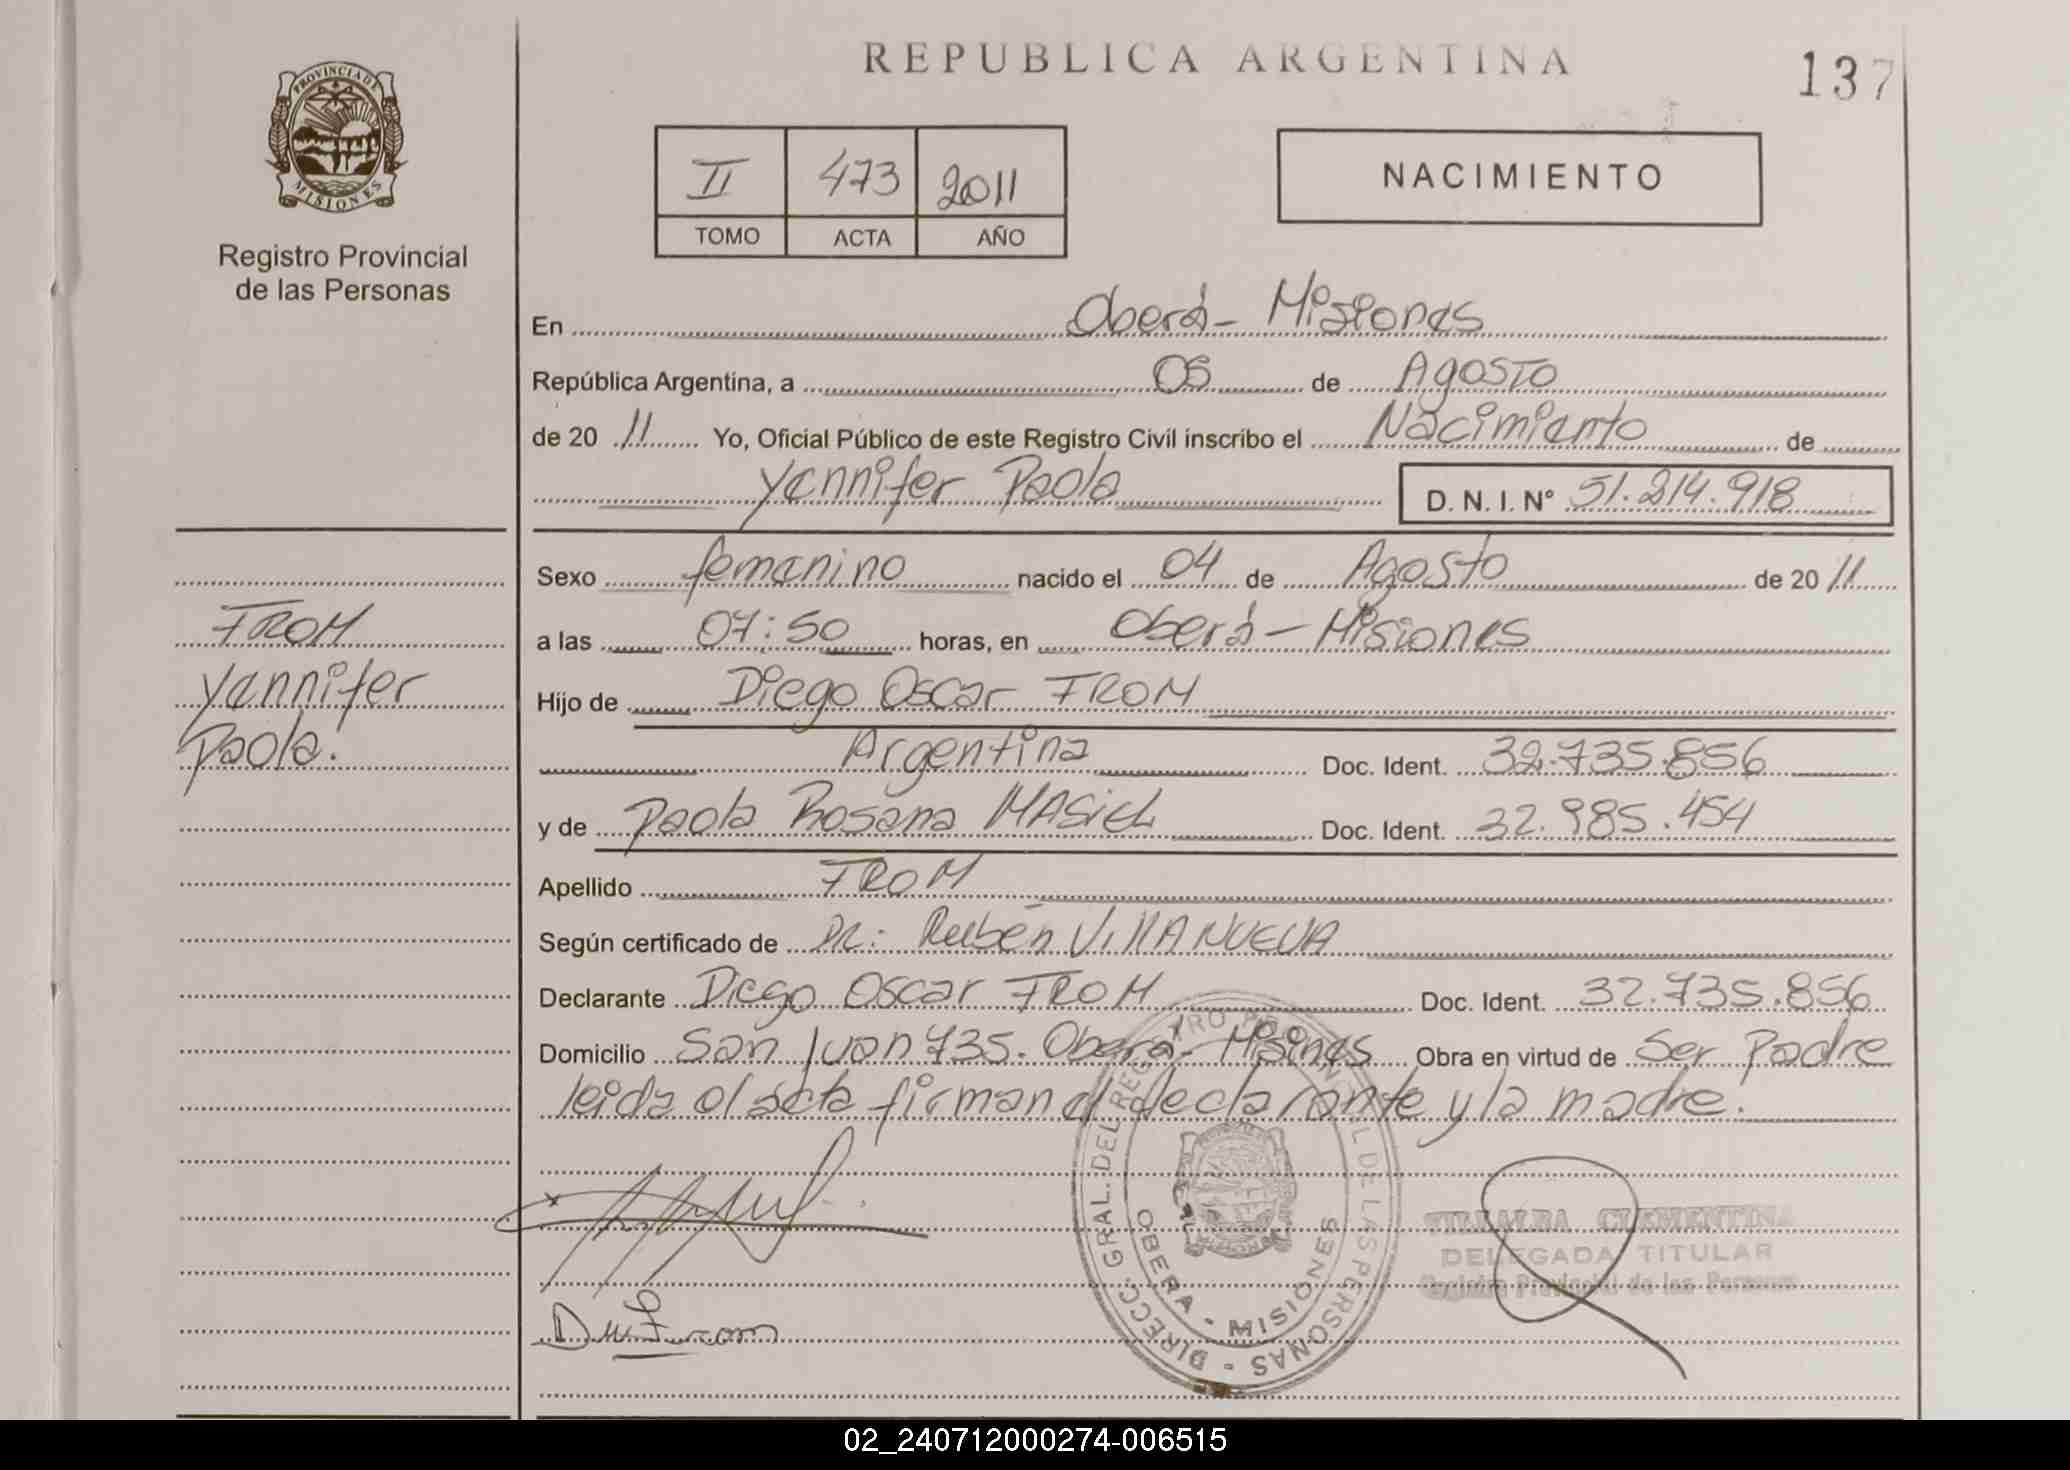 REPUBLICA ARGENTINA
137
PROVINCIA DE
MISIONES
Registro Provincial
de las Personas
II 473 2011
TOMO ACTA AÑO
NACIMIENTO
En Oberá - Misiones
República Argentina, a 05 de Agosto
de 20 11 Yo, Oficial Público de este Registro Civil inscribo el Nacimiento de
Yennifer Paola D. N. I. Nº 51.214.918
Sexo femenino nacido el 04 de Agosto de 20 11
a las 07:50 horas, en Oberá - Misiones
Hijo de Diego Oscar FROM
Argentina Doc. Ident. 32.735.856
y de Paola Rosana MASIEL Doc. Ident. 32.985.454
Apellido FROM
Según certificado de Dr: Rubén VILLANUEVA
Declarante Diego Oscar FROM Doc. Ident. 32.735.856
Domicilio San Juan 735. Oberá - Misines Obra en virtud de Ser Padre
leida el acta firman el declarante y la madre.
FROM
Yennifer
Paola.
DIRECC. GRAL. DEL REGISTRO PROVINCIAL DE LAS PERSONAS -
OBERA - MISIONES
VILLALBA CLEMENTINA
DELEGADA TITULAR
Registro Provincial de las Personas
02_240712000274-006515